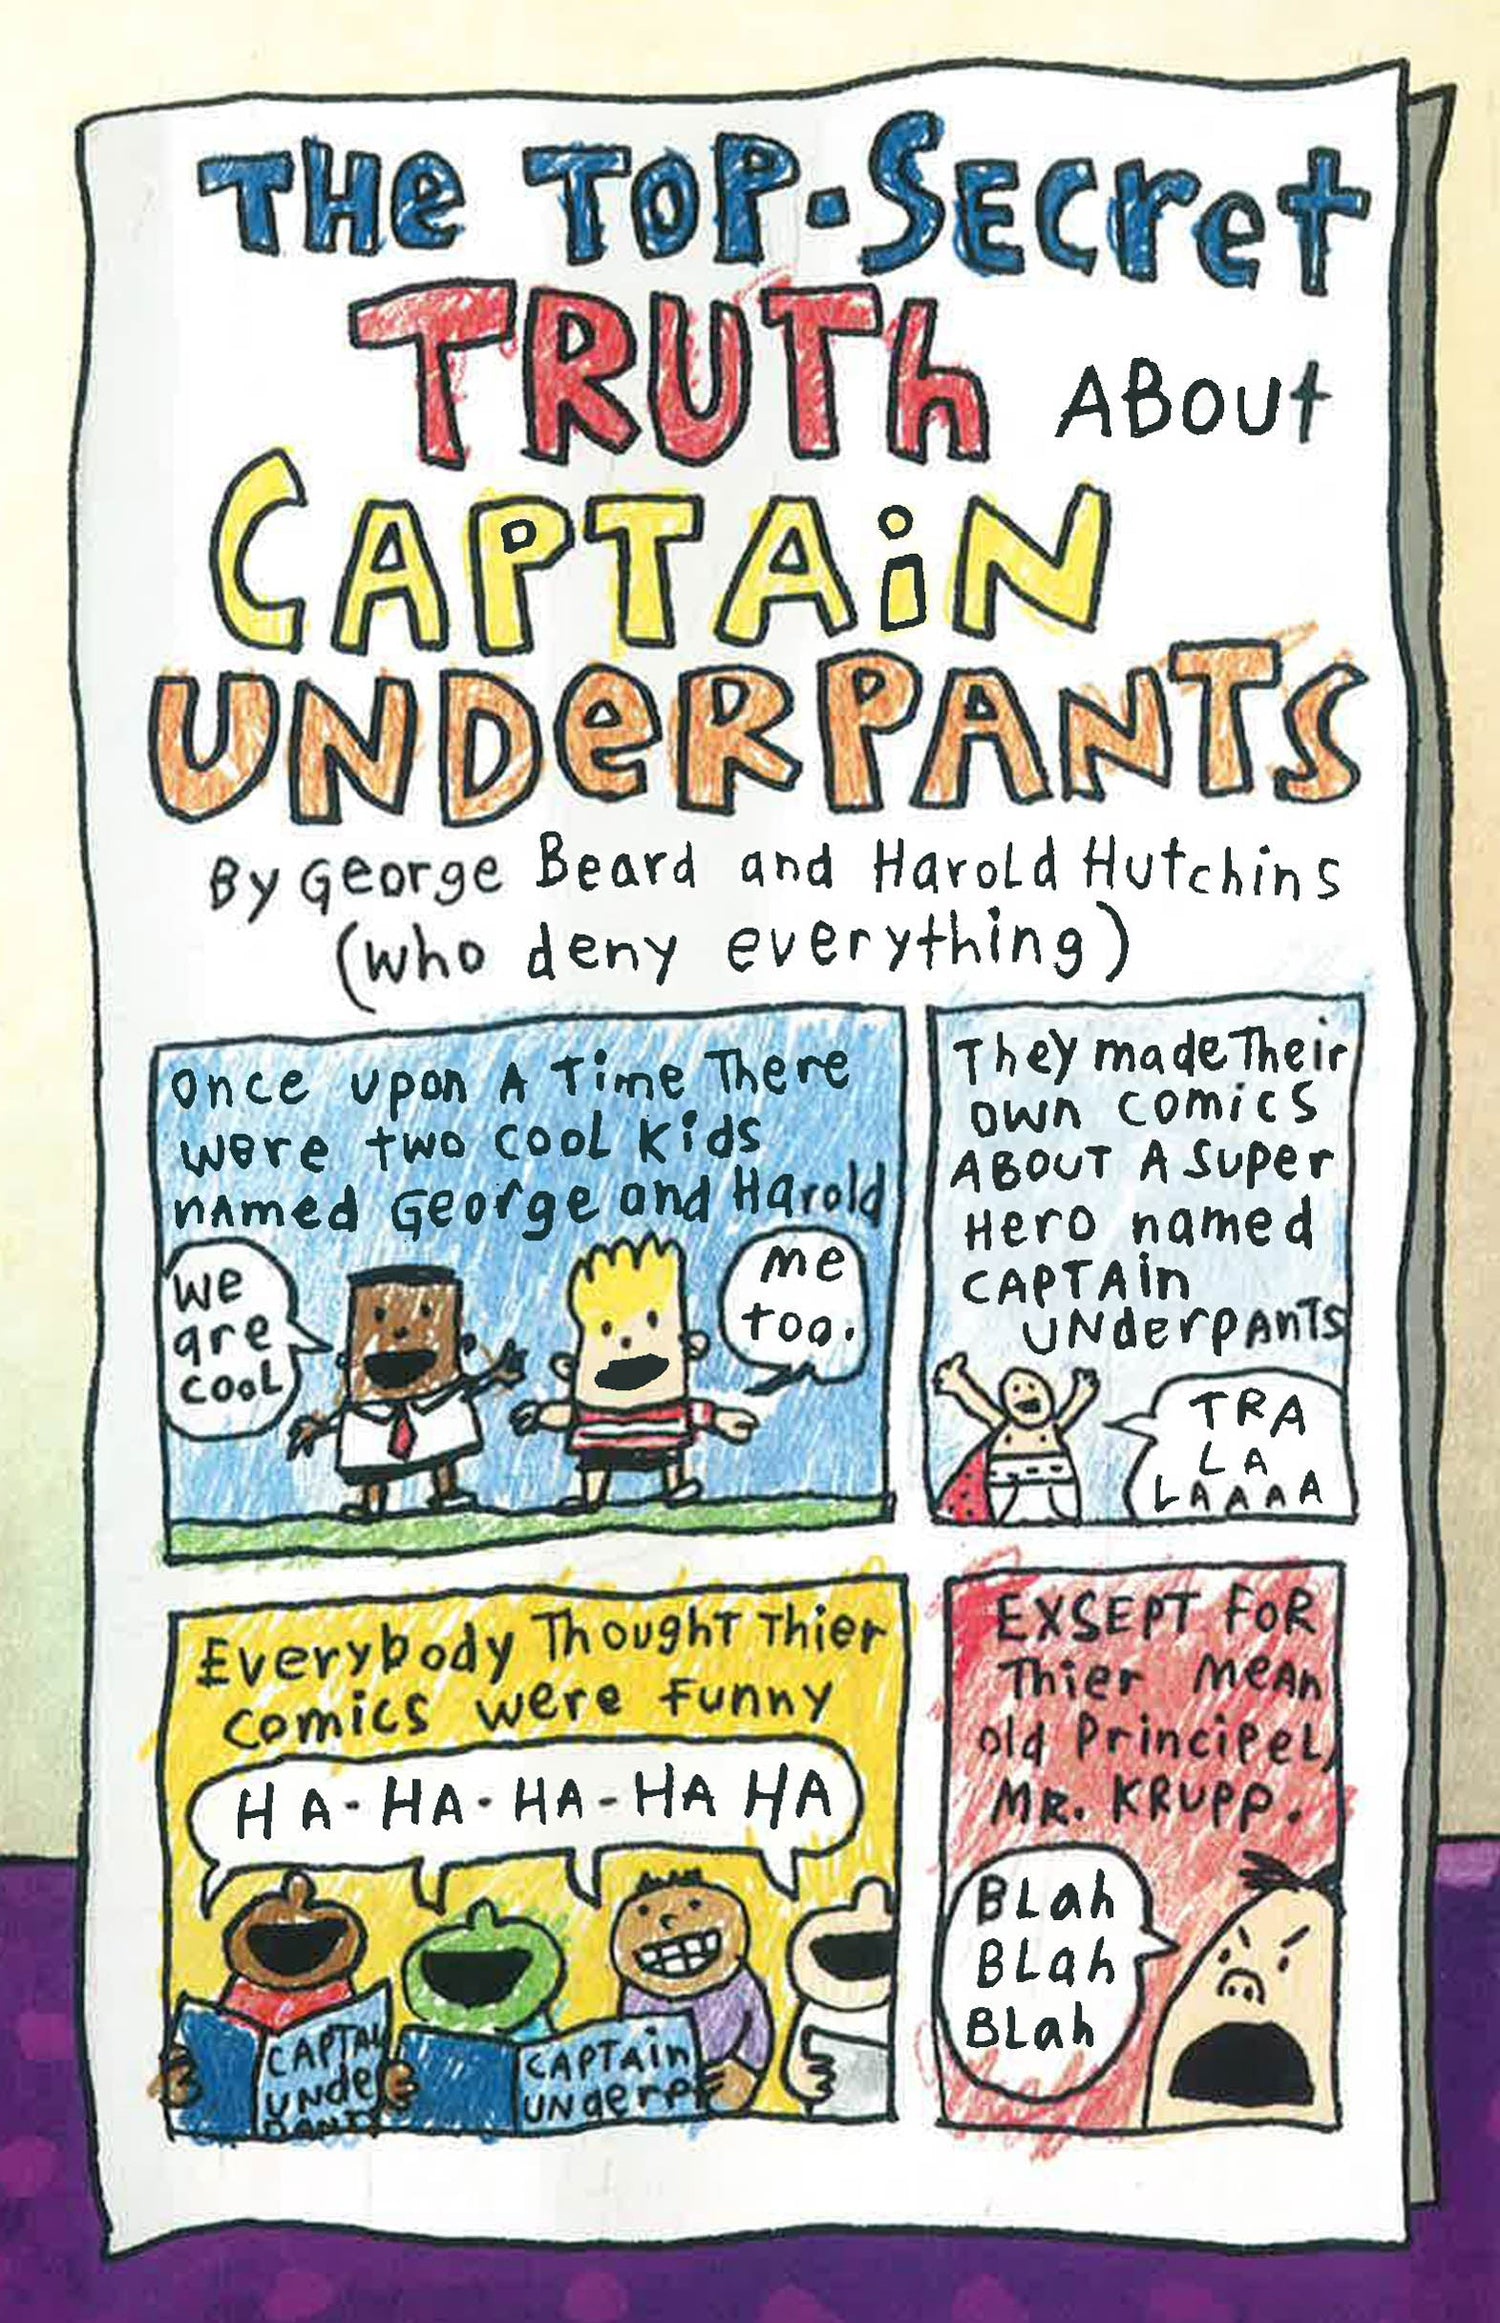 THe TOP-SECret
TRUTh ABOUt
CAPTAiN
UNDeRPANTS
By George Beard and Harold Hutchins
(who deny everything)
Once upon A Time There
were two cool kids
nAmed George and Harold
We
are
cool
me
too.
They made Their
own comics
ABOUT A Super
Hero named
CAPTAin
UNderpAnts
TRA
LA
LAAAA
Everybody Thought Thier
comics were funny
HA-HA-HA-HA HA
CAPTAi
UNde
PANTS
CAPTAin
UNderp
EXSEPT FOR
Thier meAn
old PrinciPeL,
MR. KRUPP.
BLah
BLah
BLah